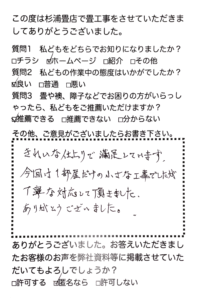 この度は杉浦畳店で畳工事をさせていただきま
してありがとうございました。
質問1 私どもをどちらでお知りになりましたか？
□チラシ ☑ホームページ □紹介 □その他
質問2 私どもの作業中の態度はいかがでしたか？
☑良い □普通 □悪い
質問3 畳や襖、障子などでお困りの方がいらっし
ゃったら、私どもをご推薦いただけますか？
☑推薦できる □推薦できない □分からない
その他、ご意見がございましたらお書き下さい。
きれいな仕上りで満足しています。
今回は1部屋だけの小さな工事でしたが
丁寧な対応して頂きました。
ありがとうございました。
ありがとうございました。お答えいただきまし
たお客様のお声を弊社資料等に掲載させていた
だいてもよろしでしょうか？
□許可する ☑匿名なら □許可しない